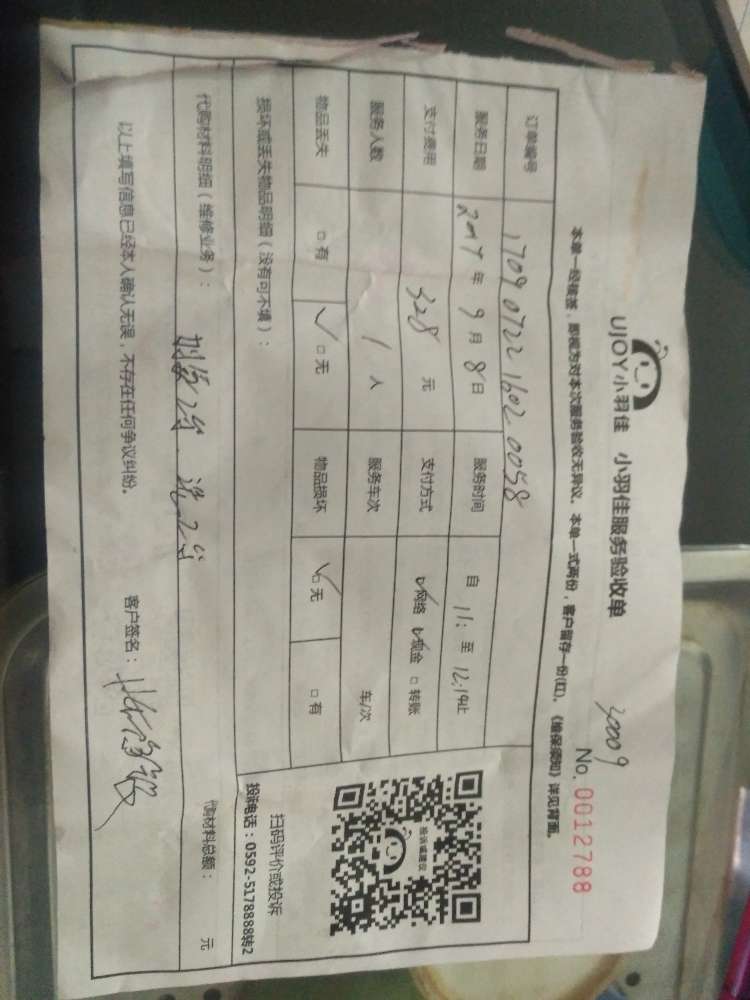 UJOY小羽佳 小羽佳服务验收单
30009
No. 0012788
本单一经核签，即视为对本次服务验收无异议。本单一式两份，客户留存一份(红)。《维保须知》详见背面。
订单编号 1709072216020058
服务日期 2017年9月8日 服务时间 自11: 至12:14止
支付费用 328元 支付方式 ☑网络 ☑现金 □转账
服务人数 1人 服务车次 车/次
物品丢失 □有 ☑无 物品损坏 ☑无 □有
损坏或丢失物品明细（没有可不填）：
代购材料明细（维修业务）：
代购材料总额： 元
以上填写信息已经本人确认无误，不存在任何争议纠纷。 客户签名：
投诉或建议
扫码评价或投诉
投诉电话：0592-5178888转2